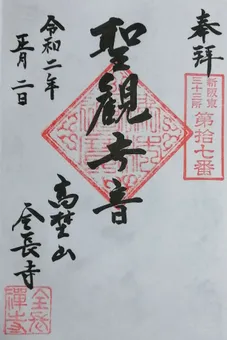 奉拝
新阪東
三十三所
第拾七番
聖観世音
令和二年
正月二日
高埜山
金長寺